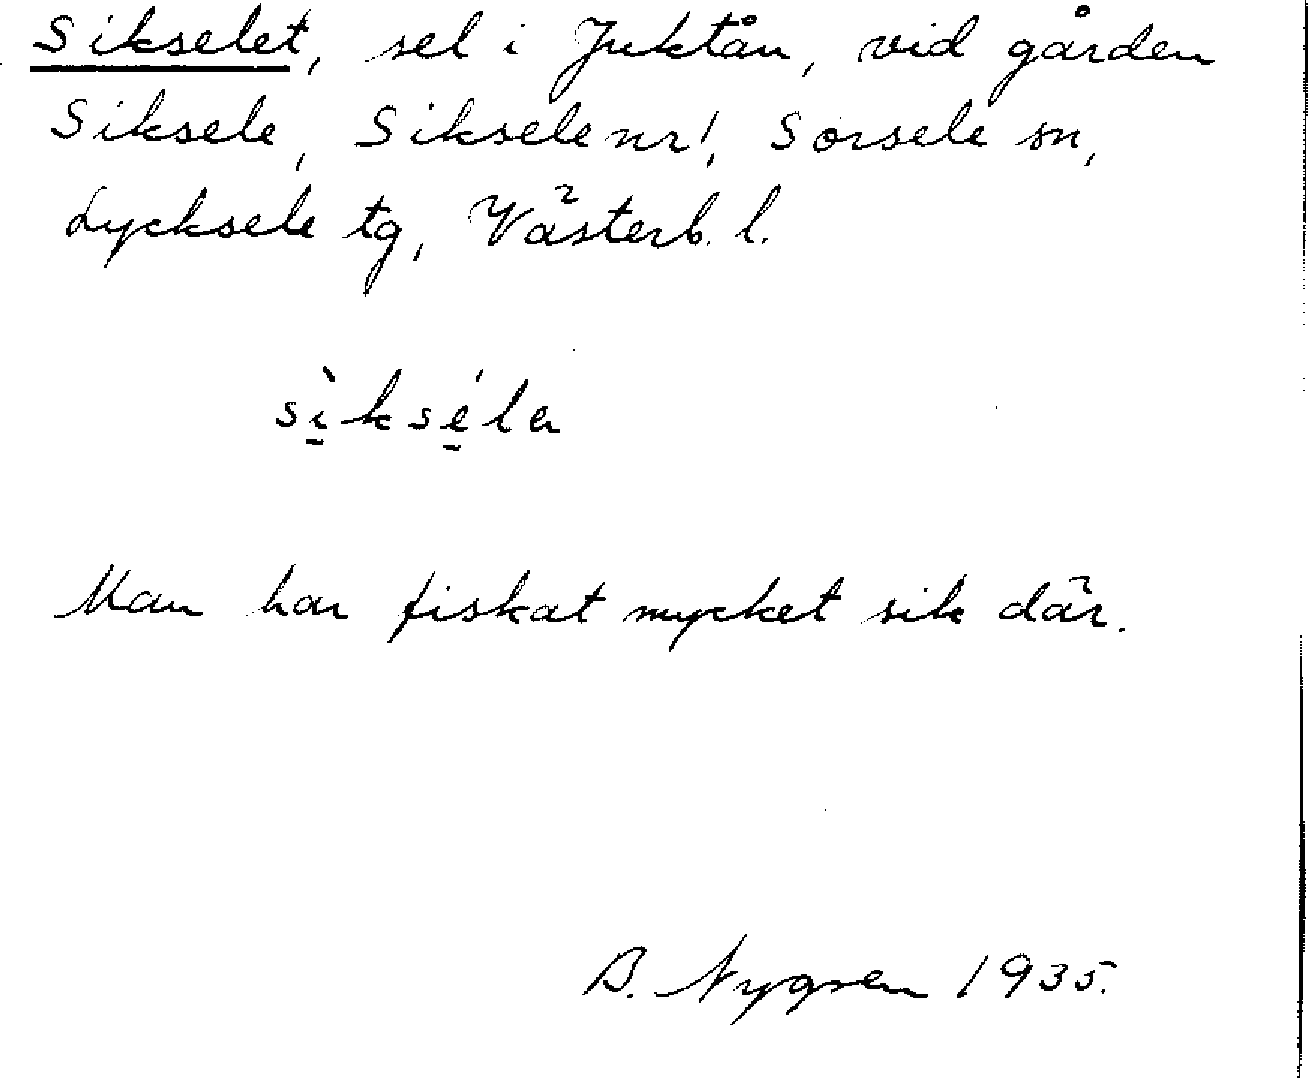 Sikselet, sel i Juktån, vid gården
Siksele, Siksele nr 1, Sorsele sn,
Lycksele tg, Västerb. l.
sı̱̀ksé̱la
Man har fiskat mycket sik där.
B. Nygren 1935.